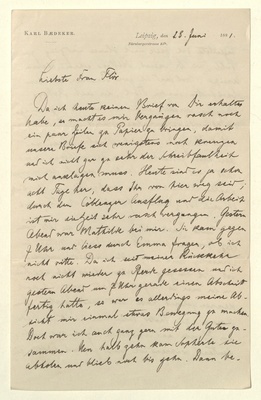 KARL BÆDEKER.
Leipzig, den 28. Juni 1891.
Liebste Frau Flor
Da ich heute keinen Brief von Dir erhalten
habe, so macht es mir Vergnügen rasch noch
ein paar Zeilen zu Papier zu bringen, damit
unsere Briefe sich wenigstens noch kreuzen
und ich mich gar zu sehr der Schreibfaulheit
nicht anklagen muss. Heute sind es ja schon
acht Tage her, dass Ihr von hier weg seid,
durch den Ausflug und die Arbeit
ist mir die Zeit sehr rasch vergangen. Gestern
Abend war Mathilde bei mir. Sie kam gegen
7 Uhr und liess durch Emma fragen, ob ich
nicht ritte. Da ich seit meiner Rückkehr
noch nicht wieder zu Pferde gesessen und ich
gestern Abend um 7 Uhr gerade einen Abschnitt
fertig hatte, so war es allerdings meine Ab-
sicht mir einmal etwas Bewegung zu machen
Doch war ich auch ganz gern mit der Guten zu-
sammen. Um halb zehn kam sie
abholen und blieb noch bis zehn. Dann be-